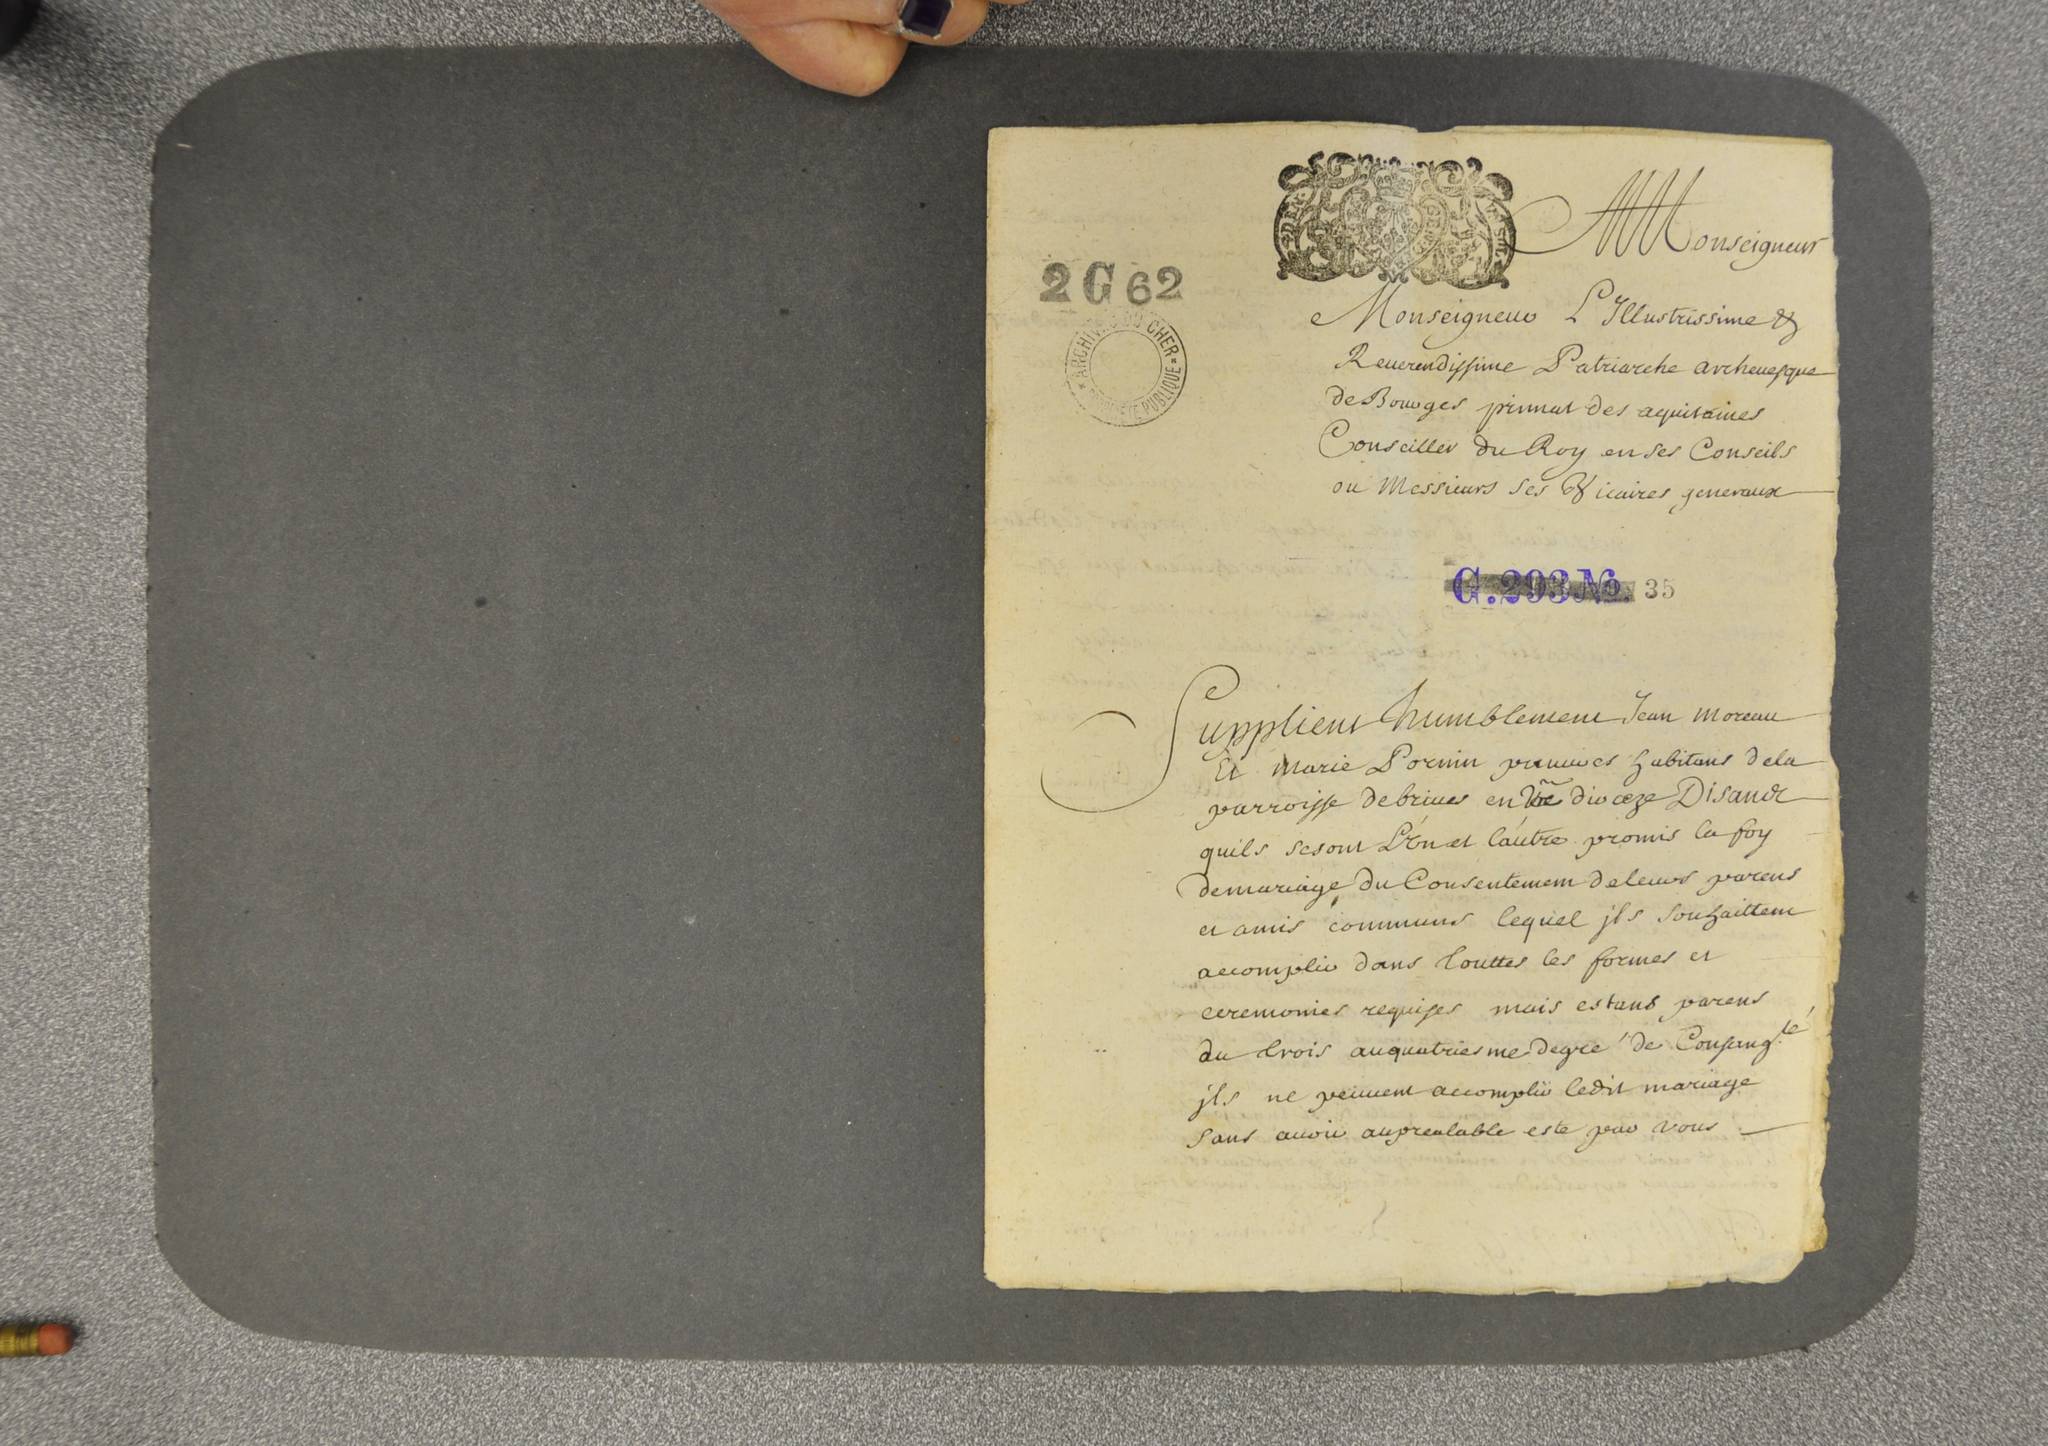 Monseigneur
2 G 62
ARCHIVES DU CHER
PROPRIÉTÉ PUBLIQUE
Monseigneur L'Illustrissime &
Reuerendissime Patriarche archeuesque
de Bourges primat des aquitaines
Conseiller du Roy en ses Conseils
ou Messieurs ses Vicaires generaux
G. 293 No. 35
Supplient humblement Jean moreau
Et marie Pornin pauures habitans dela
parroisse debriues en dioceze Disaudt
quils sesont L'un et l'autre promis la foy
demariage du Consentement deleurs parens
et amis communs lequel jls souhaittent
accomplir dans touttes les formes et
ceremonies requises mais estans parens
du trois auquatriesme degré de Consang.té
jls ne peuuent accomplir ledit mariage
sans auoir aupréalable esté par vous